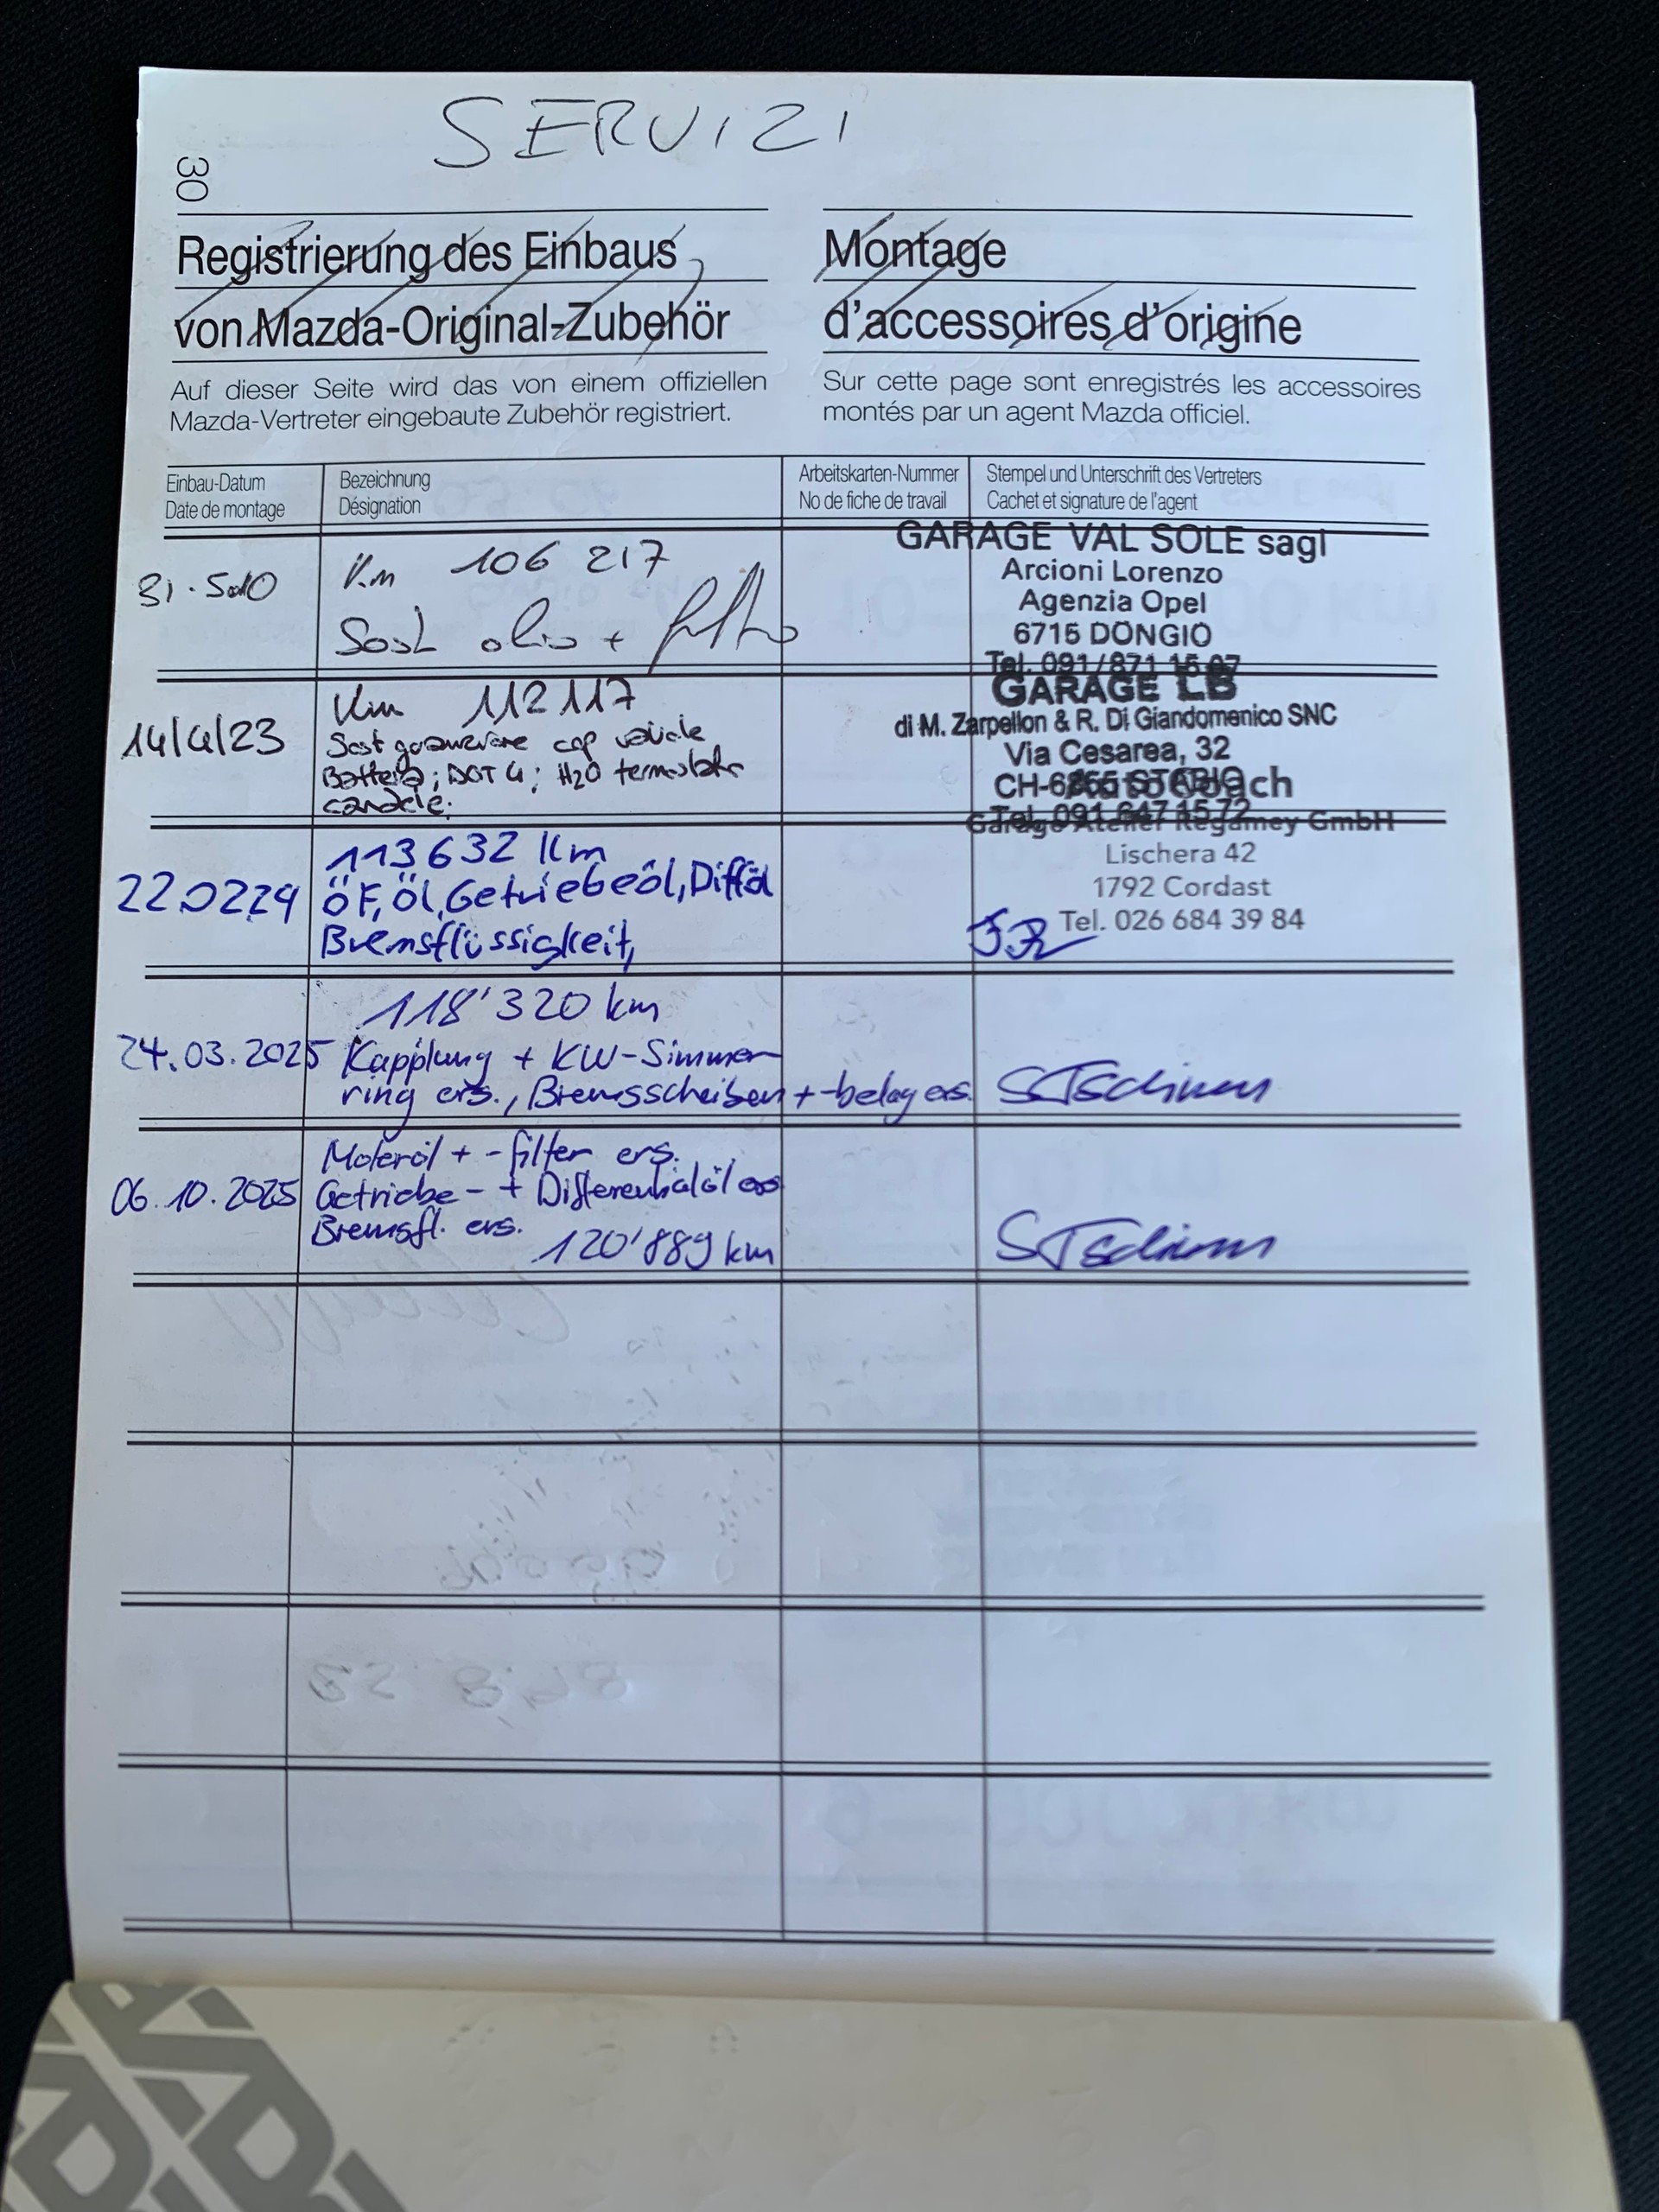 SERVIZI
30
Registrierung des Einbaus
von Mazda-Original-Zubehör
Auf dieser Seite wird das von einem offiziellen
Mazda-Vertreter eingebaute Zubehör registriert.
Montage
d'accessoires d'origine
Sur cette page sont enregistrés les accessoires
montés par un agent Mazda officiel.
Einbau-Datum
Date de montage
Bezeichnung
Désignation
Arbeitskarten-Nummer
No de fiche de travail
Stempel und Unterschrift des Vertreters
Cachet et signature de l'agent
Km 106 217
Sost olio + filtro
GARAGE VAL SOLE sagl
Arcioni Lorenzo
Agenzia Opel
6715 DONGIO
Tel. 091/871 15 07
14/4/23
Km 112117
Sost guarnizione cop valvole
Batteria; DOT 4; H2O termostato
candele.
GARAGE LB
di M. Zarpellon & R. Di Giandomenico SNC
Via Cesarea, 32
CH-6855 STABIO
Tel. 091 647 15 72
22.02.24
113632 Km
ÖF, Öl, Getriebeöl, Difföl
Bremsflüssigkeit,
Garage Atelier Regamey GmbH
Lischera 42
1792 Cordast
Tel. 026 684 39 84
24.03.2025
118'320 km
Kupplung + KW-Simmer
ring ers., Bremsscheiben + -belag ers.
06.10.2025
Motoröl + -filter ers.
Getriebe- + Differentialöl ers
Bremsfl. ers.
120'889 km